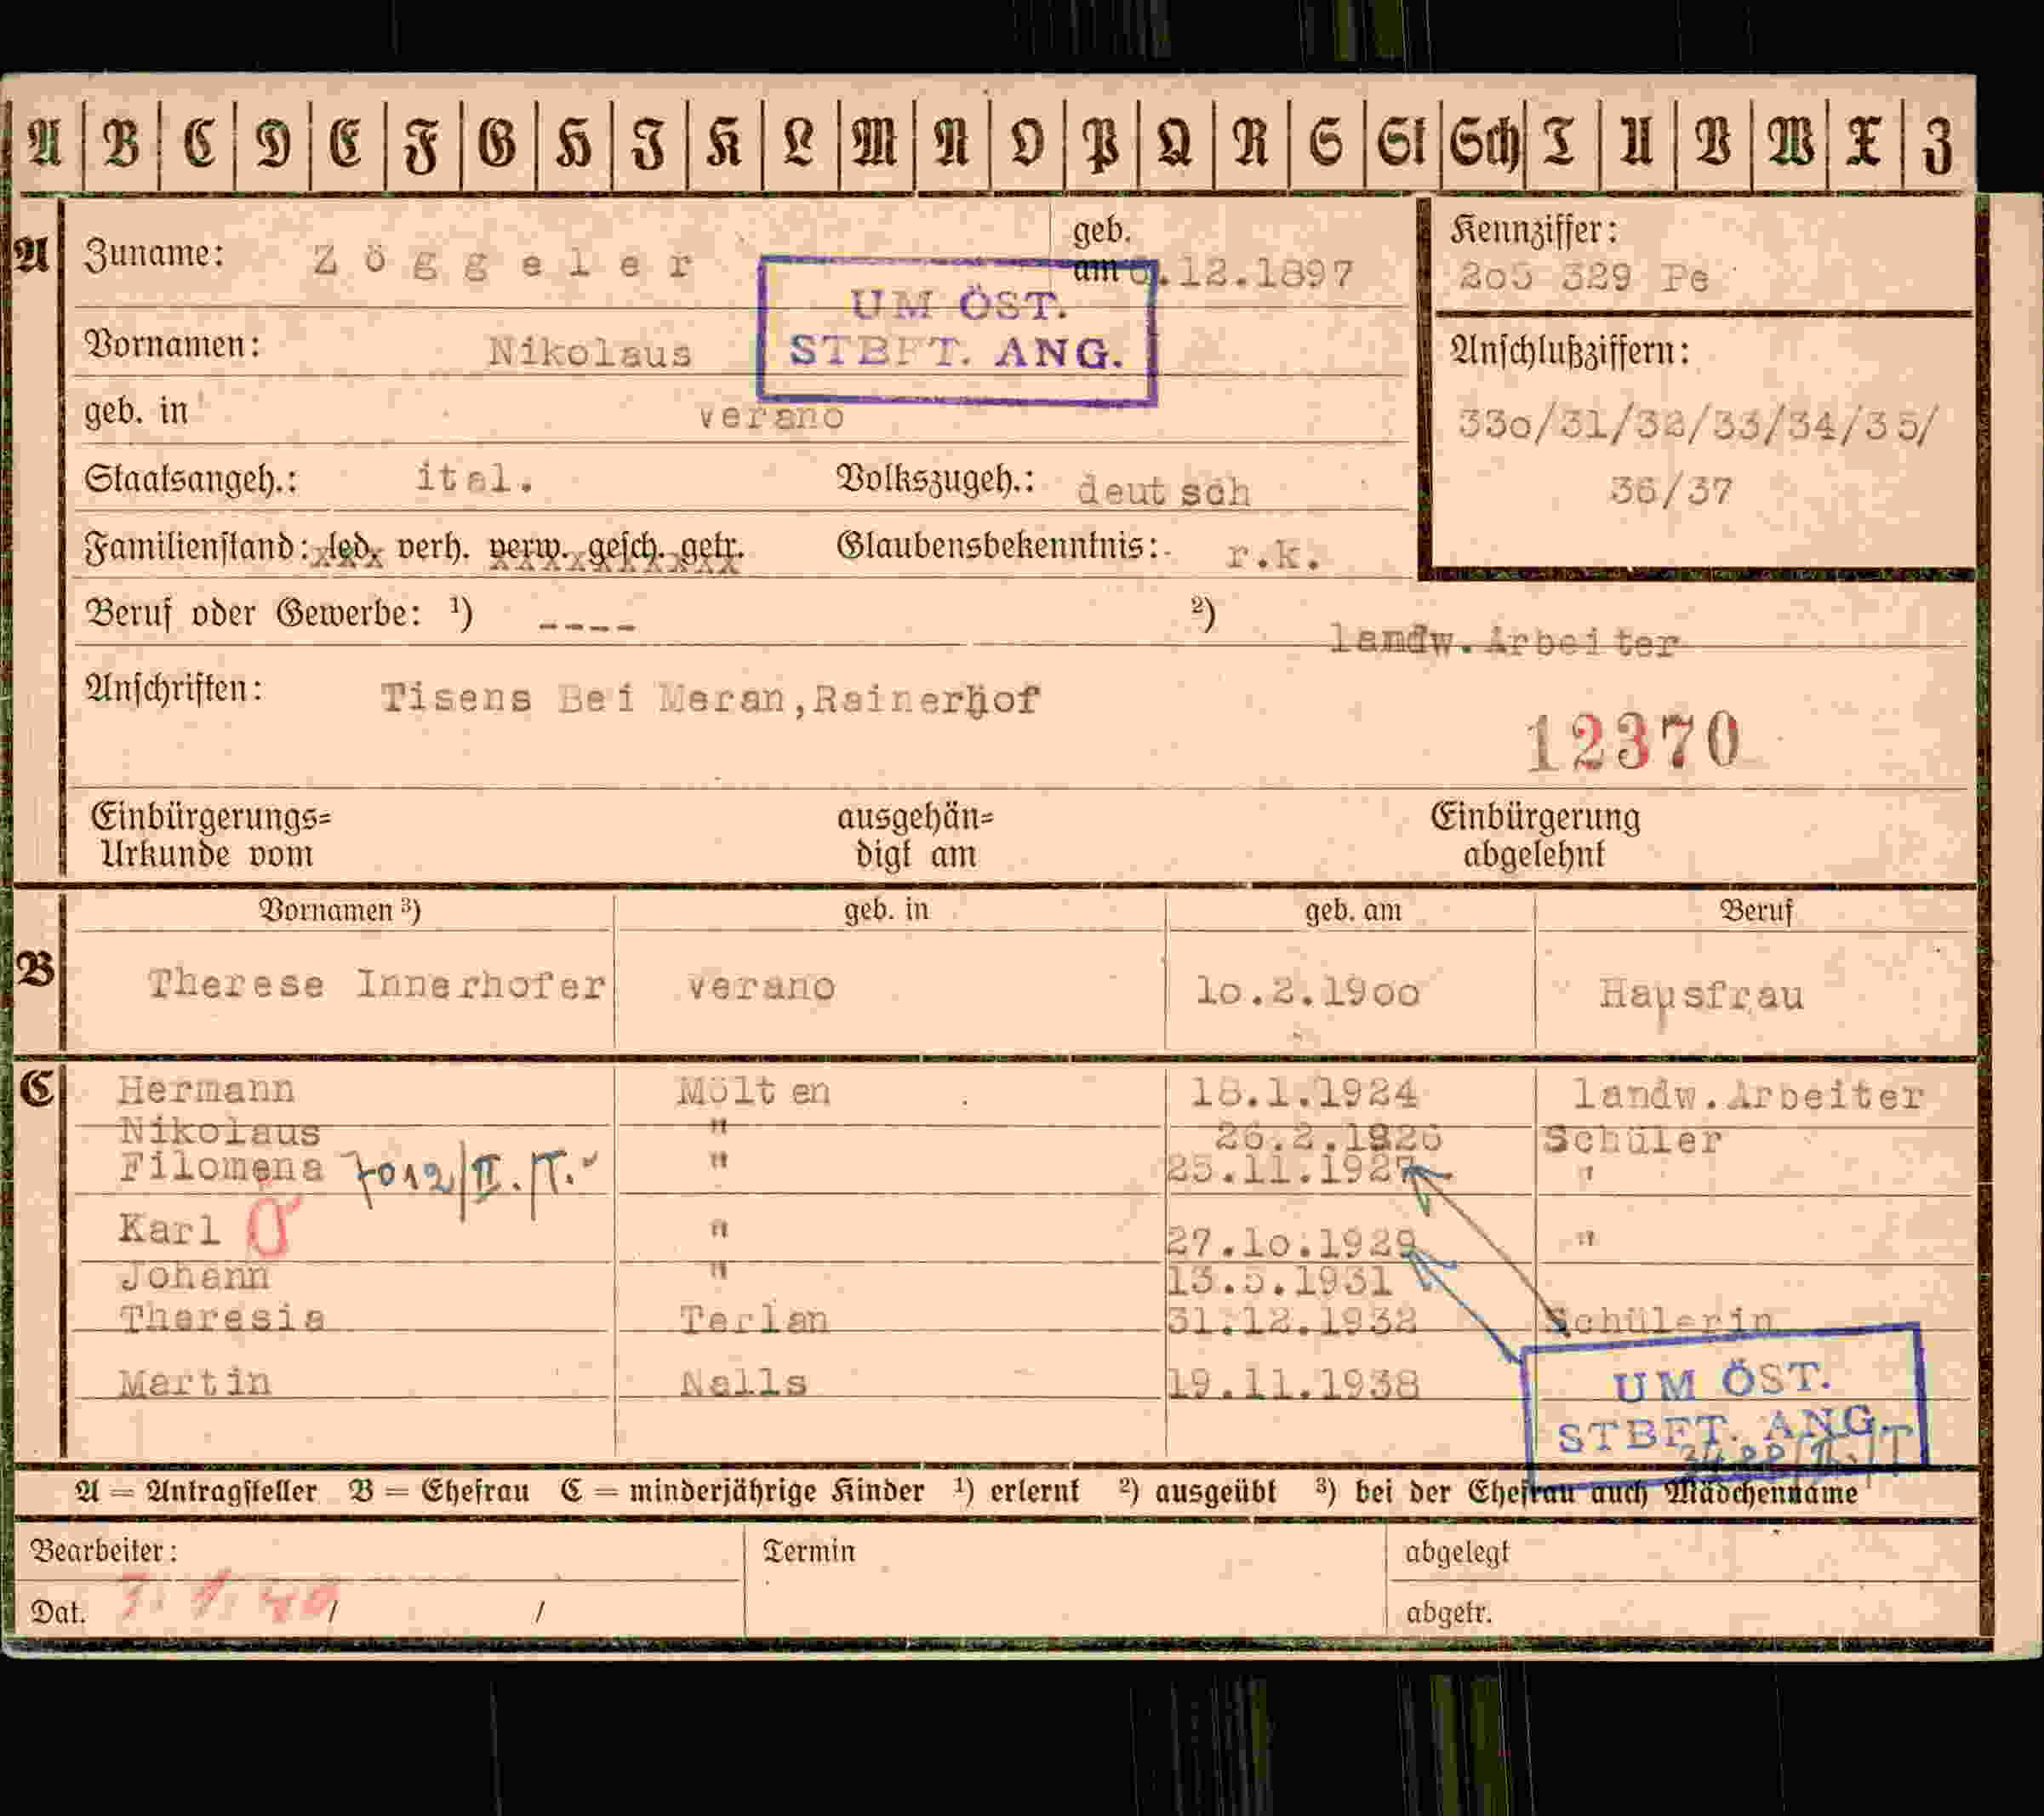 A B C D E F G H I K L M N O P Q R S St Sch T U V W X Z
A Zuname: Zöggeler geb. am .12.1897 Kennziffer:
205 329 Pe
UM ÖST.
STBFT. ANG.
Vornamen: Nikolaus Anschlußziffern:
geb. in verano 330/31/32/33/34/35/
36/37
Staatsangeh.: ital. Volkszugeh.: deutsch
Familienstand: led. verh. verw. gesch. getr. Glaubensbekenntnis: r.k.
Beruf oder Gewerbe: ¹) ---- ²) landw.Arbeiter
Anschriften: Tisens Bei Meran,Rainerhof
12370
Einbürgerungs= ausgehän= Einbürgerung
Urkunde vom digt am abgelehnt
Vornamen ³) geb. in geb. am Beruf
B Therese Innerhofer verano 10.2.1900 Hausfrau
C Hermann Mölten 18.1.1924 landw.Arbeiter
Nikolaus " 26.2.1926 Schüler
Filomena 7012/II./T. " 25.11.1927 "
Karl " 27.10.1929 "
Johann " 13.5.1931
Theresia Terlan 31.12.1932 Schülerin
Martin Nalls 19.11.1938
UM ÖST.
STBFT. ANG.
A = Antragsteller B = Ehefrau C = minderjährige Kinder ¹) erlernt ²) ausgeübt ³) bei der Ehefrau auch Mädchenname
Bearbeiter: Termin abgelegt
Dat. / / abgetr.